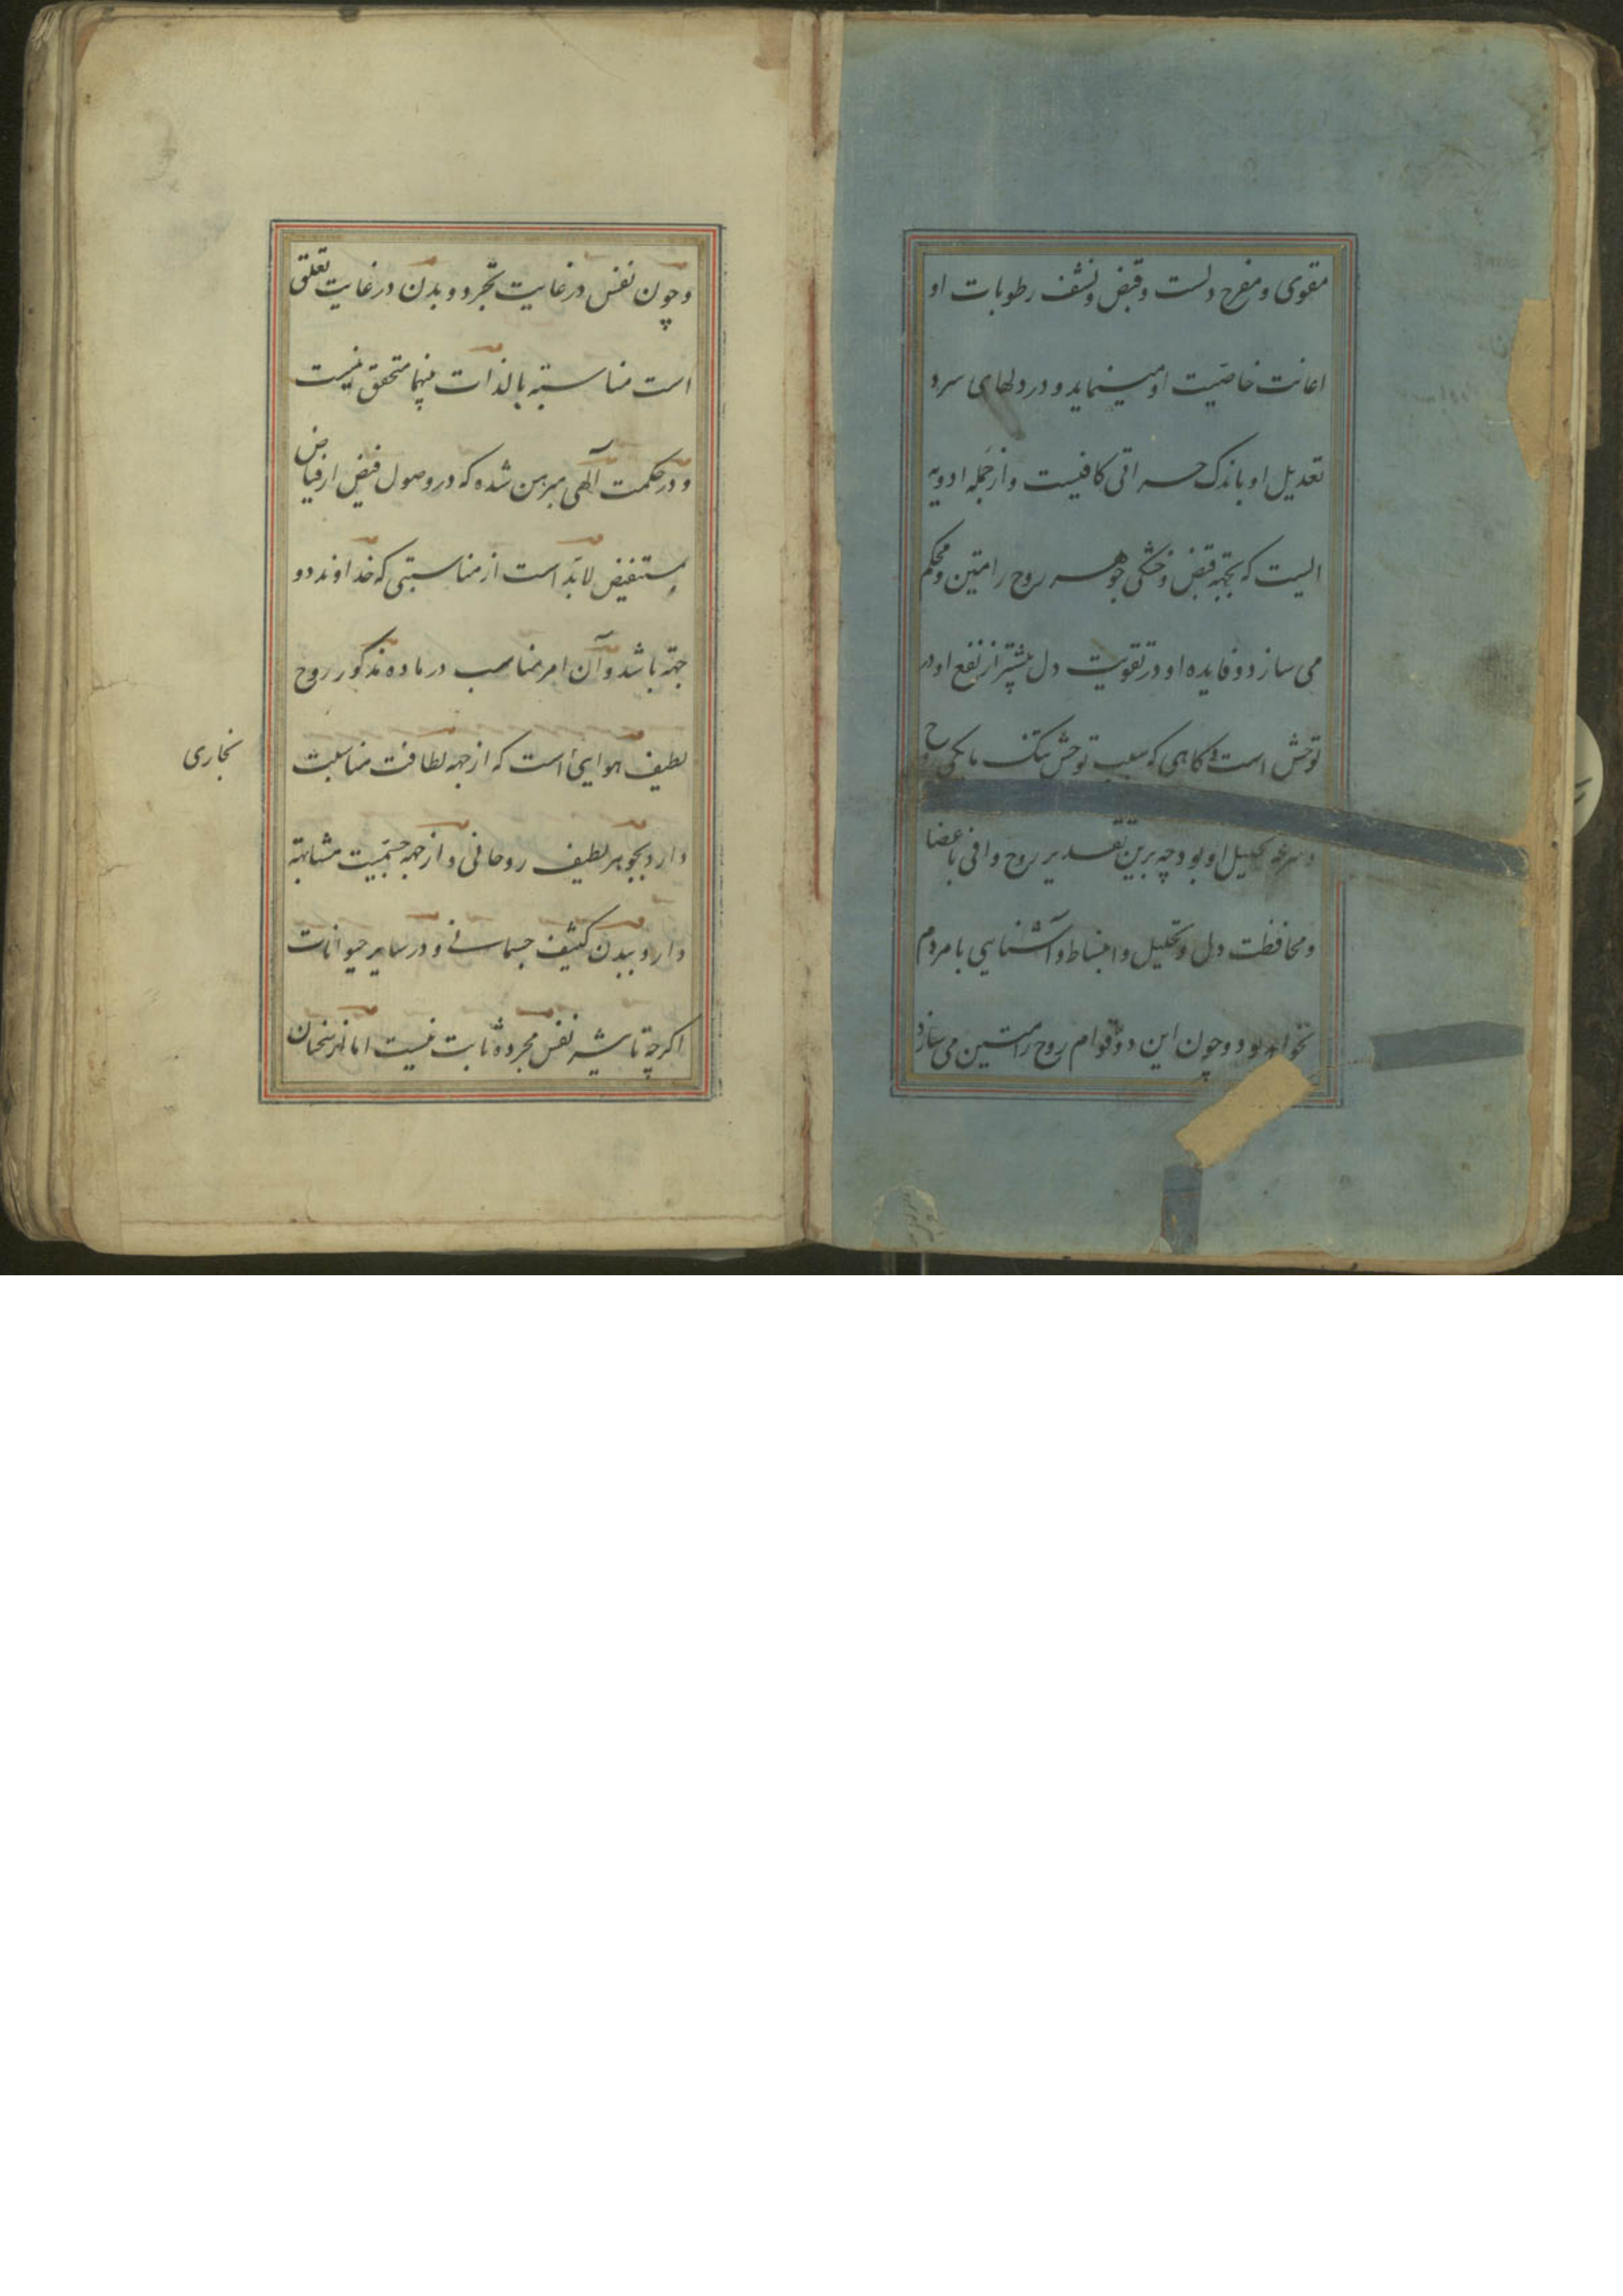 مقوی و مفرح دلست و قبض و نشف رطوبات او
اعانت خاصیت او مینماید و در دلهای سرد
تعدیل او باندک حرارتی کافیست و از جمله ادویه
الیست که بجهة قبض و خشکی جوهر روح را متین و محکم
می سازد و فایده او در تقویت دل بیشتر از نفع او در
توحش است کاهی که سبب توحش
تحلیل او بود چه برین تقدیر روح وافی باعضا
و محافظت دل و تحلیل و انبساط و آشنایی با مردم
نخواهد بود و چون این دو قوام روح را متین می سازد
و چون نفس در غایت تجرد و بدن در غایت تعلق
است مناسبته بالذات بینهما متحقق نیست
و در حکمت آلهی مبرهن شده که در وصول فیض از فیاض
بمستفیض لابد است از مناسبتی که خداوند دو
جهة باشد و آن امر مناسب در ماده مذکور روح
لطیف هوایی است که از جهة لطافت مناسبت
بخاری
دارد بجوهر لطیف روحانی و از جهة جسمیت مشابهة
دارد ببدن کثیف جسمانی و در سایر حیوانات
اکرچه تاثیر نفس مجرده ثابت نیست اما از سخنان